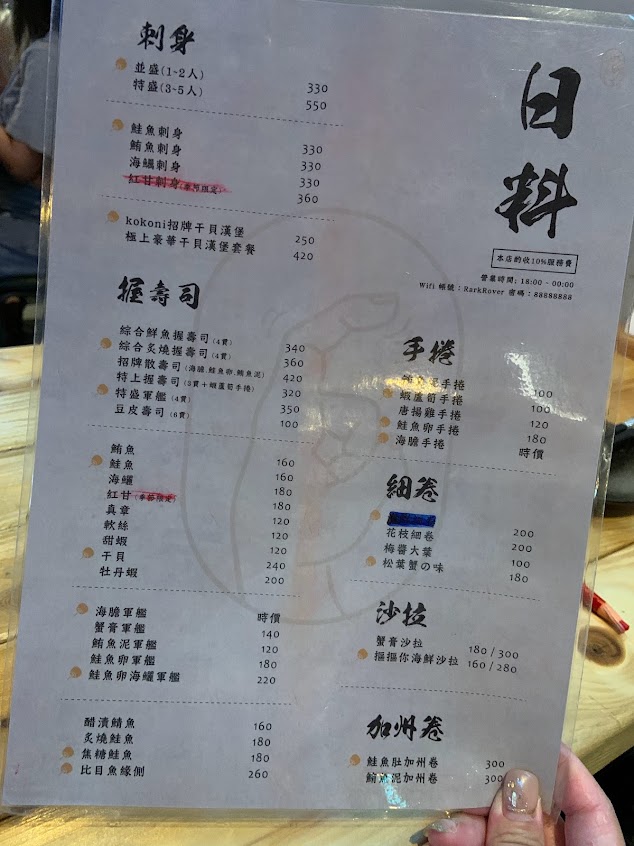 刺身
並盛(1~2人) 330
特盛(3~5人) 550
鮭魚刺身 330
鮪魚刺身 330
海鱺刺身 330
紅甘刺身(季節限定) 360
kokoni招牌干貝漢堡 250
極上豪華干貝漢堡套餐 420
握壽司
綜合鮮魚握壽司(4貫) 340
綜合炙燒握壽司(4貫) 360
招牌散壽司(海膽.鮭魚卵.鮪魚泥) 420
特上握壽司(3貫+蝦蘆筍手捲) 320
特盛軍艦(4貫) 350
豆皮壽司(6貫) 100
鮪魚 160
鮭魚 160
海鱺 180
紅甘(季節限定) 180
真章 120
軟絲 120
甜蝦 120
干貝 240
牡丹蝦 200
海膽軍艦 時價
蟹膏軍艦 140
鮪魚泥軍艦 120
鮭魚卵軍艦 180
鮭魚卵海鱺軍艦 220
醋漬鯖魚 160
炙燒鮭魚 180
焦糖鮭魚 180
比目魚緣側 260
日料
本店酌收10%服務費
營業時間: 18:00 - 00:00
Wifi 帳號:RarkRover 密碼:88888888
手捲
手捲 100
蝦蘆筍手捲 100
唐揚雞手捲 120
鮭魚卵手捲 180
海膽手捲 時價
細卷
200
花枝細卷 200
梅醬大葉 100
松葉蟹の味 180
沙拉
蟹膏沙拉 180/300
摳摳你海鮮沙拉 160/280
加州卷
鮭魚肚加州卷 300
鮪魚泥加州卷 300